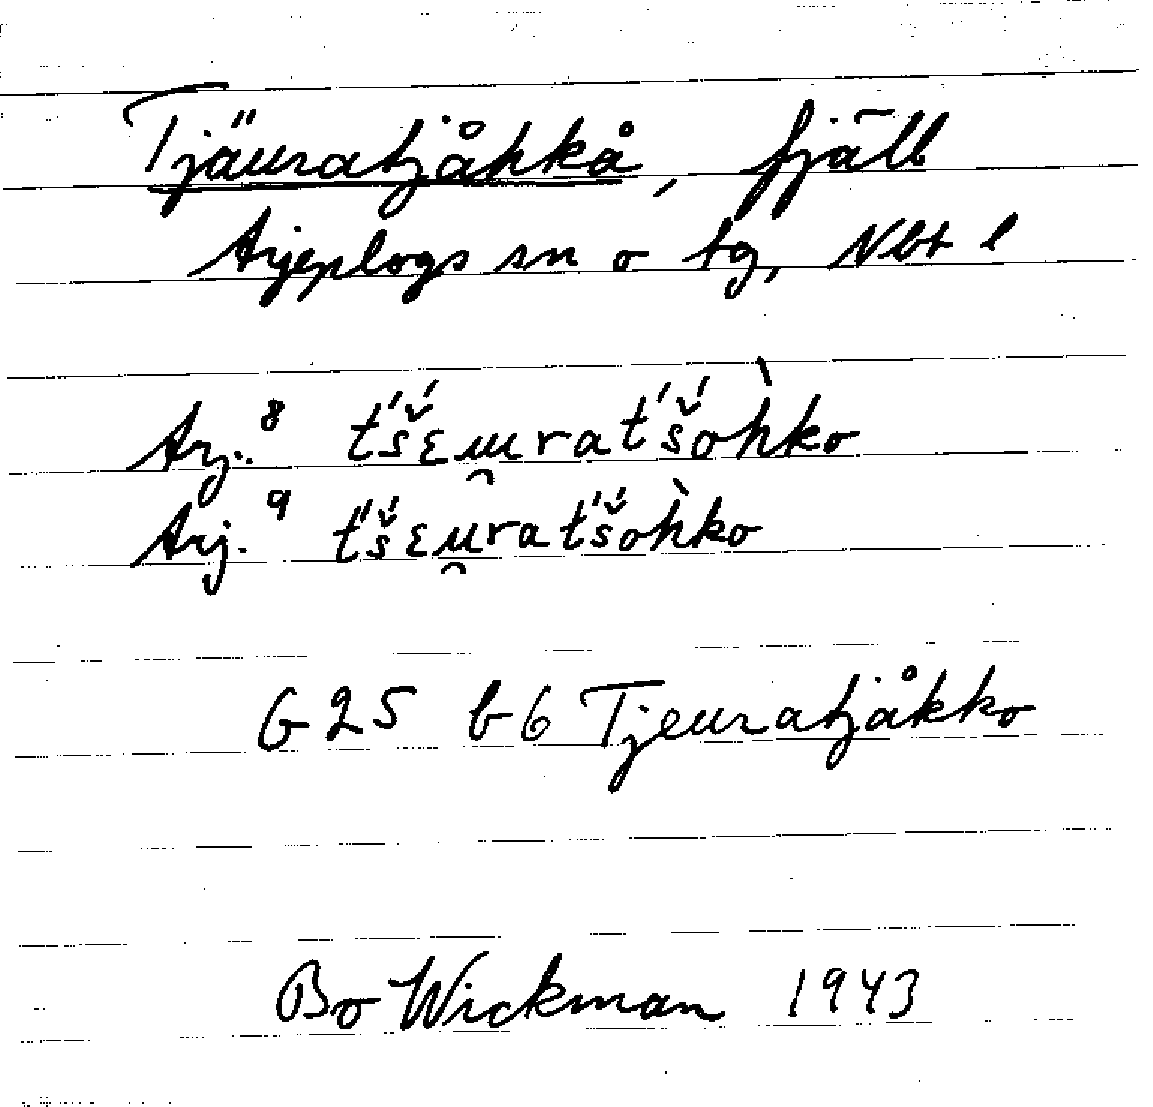 Tjäuratjåhkå, fjäll
Arjeplogs sn o tg, Nbt l
Arj.⁸ t́š́ɛu̯rat́š́oh̀ko
Arj.⁹ t́š́ɛu̯rat́š́oh̀ko
G25 b6 Tjeuratjåkko
Bo Wickman 1943